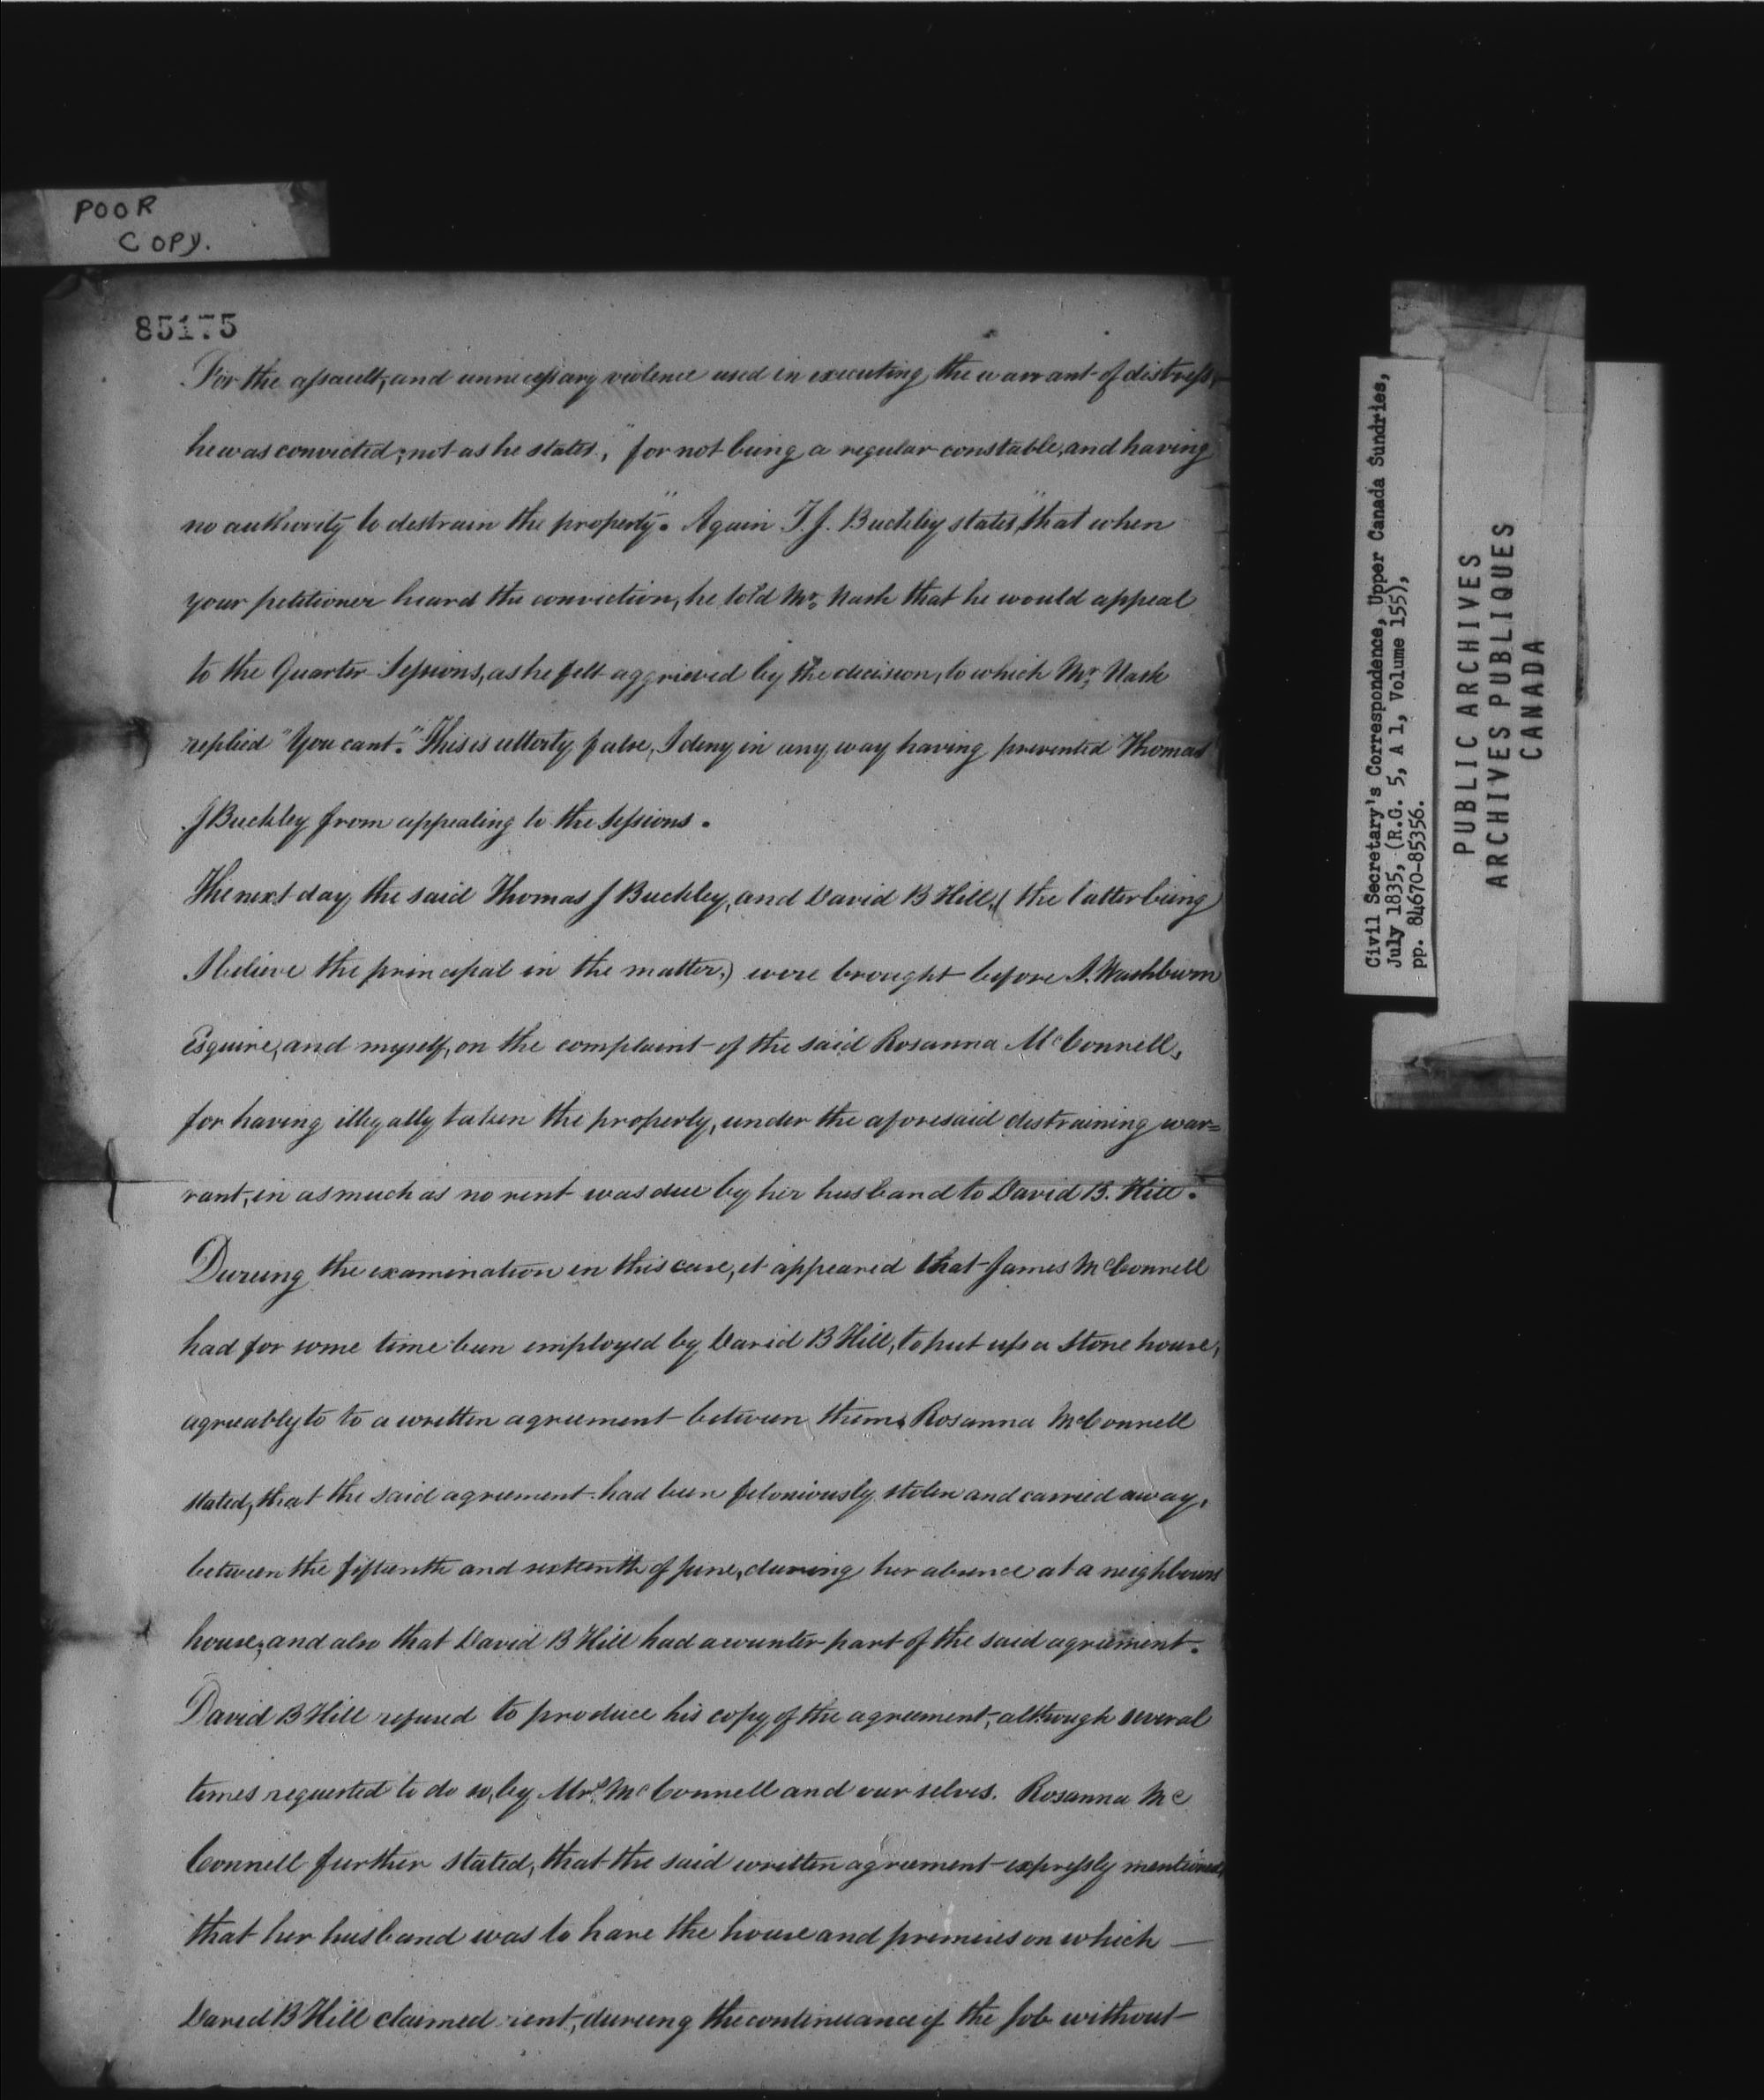 POOR
COPY.
85175
For the assault, and unnecessary violence used in executing the warrant of distress,
he was convicted; not as he states, "for not being a regular constable, and having
no authority to destrain the property". Again T. J. Buckley states, "that when
your petitioner heard the conviction, he told Mr. Nash that he would appeal
to the Quarter Sessions, as he felt aggrieved by the decision, to which Mr. Nash
replied "You cant." This is utterly false, I deny in any way having prevented Thomas
J Buckley from appealing to the Sessions.
The next day the said Thomas J Buckley, and David B Hill, (the latter being
I believe the principal in the matter,) were brought before S. Washburn
Esquire, and myself, on the complaint of the said Rosanna McConnell,
for having illegally taken the property, under the aforesaid distraining war=
rant, in as much as no rent was due by her husband to David B. Hill.
Dureing the examination in this case, it appeared that James McConnell
had for some time been employed by David B Hill, to put up a Stone house,
agreeably to to a written agreement between them. Rosanna McConnell
stated, that the said agreement had been feloniously stolen and carried away,
between the fifteenth and sixteenth of June, during her absence at a neighbours
house, and also that David B Hill had a counter part of the said agreement.
David B Hill refused to produce his copy of the agreement, although several
times requested to do so, by Mrs. McConnell and our selves. Rosanna Mc
Connell further stated, that the said written agreement expressly mentioned,
that her husband was to have the house and premises on which —
David B Hill claimed rent, dureing the continuance of the Job without
Civil Secretary's Correspondence, Upper Canada Sundries,
July 1835, (R.G. 5, A 1, Volume 155),
pp. 84670-85356.
PUBLIC ARCHIVES
ARCHIVES PUBLIQUES
CANADA